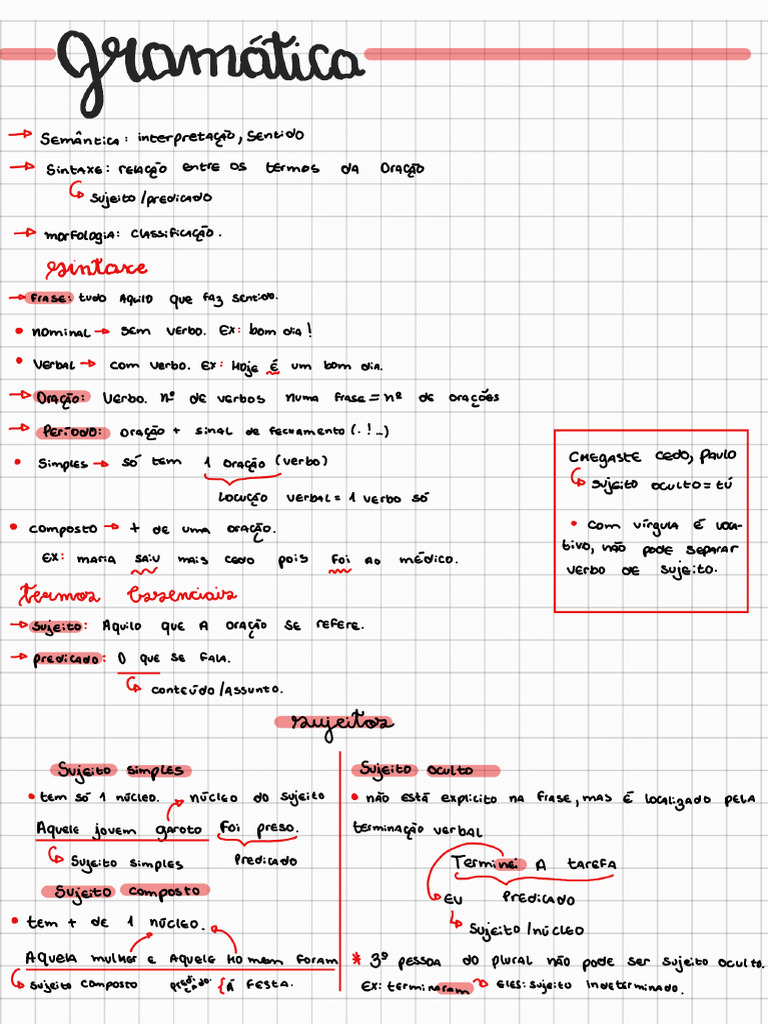 gramática
→ Semântica: interpretação, sentido
→ Sintaxe: relação entre os termos da oração
↳ sujeito/predicado
→ morfologia: classificação.
sintaxe
→ frase: tudo aquilo que faz sentido.
• nominal → sem verbo. Ex: bom dia!
• verbal → com verbo. Ex: Hoje é um bom dia.
→ Oração: verbo. nº de verbos numa frase = nº de orações
→ Período: oração + sinal de fechamento (. ! ...)
• Simples → só tem 1 oração (verbo)
locução verbal = 1 verbo só
• composto → + de uma oração.
Ex: maria saiu mais cedo pois foi ao médico.
Chegaste cedo, Paulo
↳ sujeito oculto = tú
• com vírgula é voca-
tivo, não pode separar
verbo de sujeito.
termos essenciais
→ sujeito: Aquilo que a oração se refere.
→ predicado: O que se fala.
↳ conteúdo/assunto.
sujeitos
Sujeito simples
• tem só 1 núcleo. → núcleo do sujeito
Aquele jovem garoto foi preso.
↳ Sujeito simples Predicado
Sujeito composto
• tem + de 1 núcleo.
Aquela mulher e aquele homem foram
↳ sujeito composto predicado { á festa.
Sujeito oculto
• não está explicito na frase, mas é localizado pela
terminação verbal
Terminei a tarefa
Eu Predicado
↳ Sujeito/núcleo
* 3º pessoa do plural não pode ser sujeito oculto.
Ex: terminaram → Eles: sujeito indeterminado.